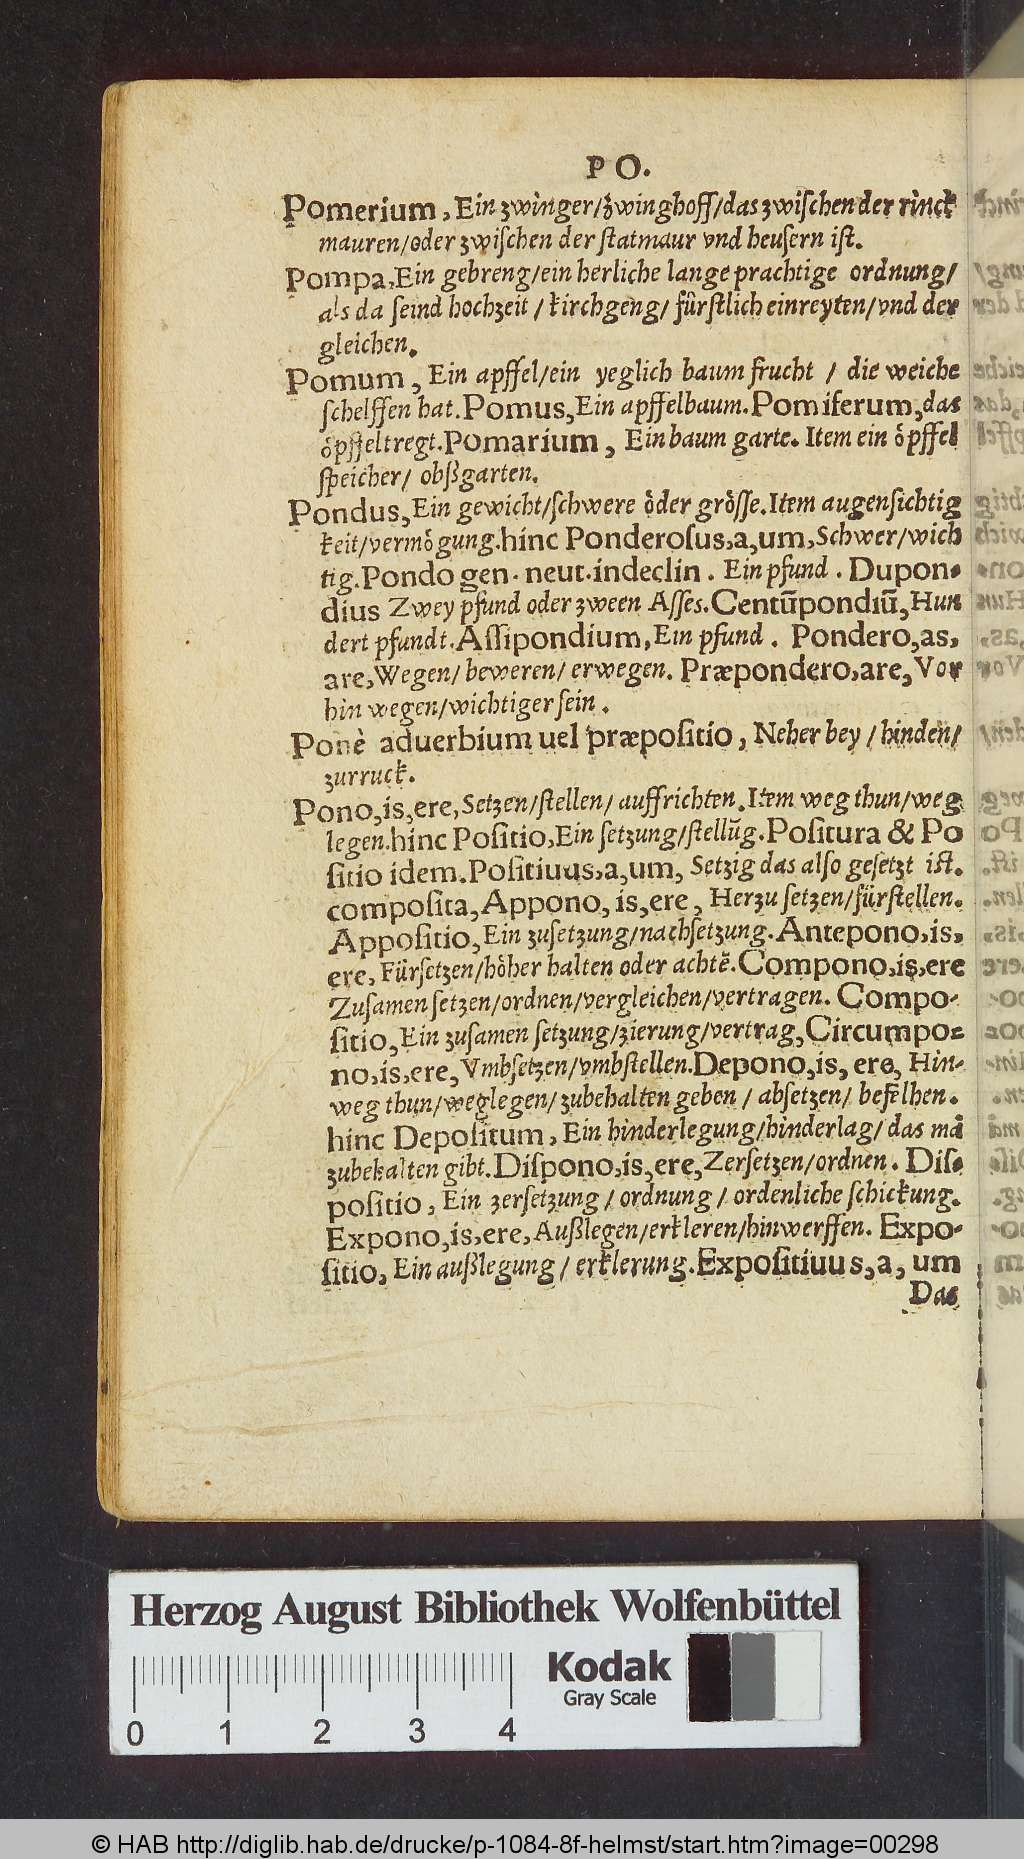 PO.
Pomerium, Ein zwinger/zwinghoff/das zwischen der rinck
mauren/oder zwischen der statmaur vnd heusern ist.
Pompa, Ein gebreng/ein herliche lange prachtige ordnung/
als da seind hochzeit / kirchgeng/ fürstlich einreyten/vnd der
gleichen.
Pomum, Ein apffel/ein yeglich baum frucht / die weiche
schelffen hat. Pomus, Ein apffelbaum. Pomiferum, das
öpffeltregt. Pomarium, Ein baum garte. Item ein öpffel
speicher/ obßgarten.
Pondus, Ein gewicht/schwere oder grösse. Item augensichtig
keit/vermögung. hinc Ponderosus,a,um, Schwer/wich
tig. Pondo gen. neut. indeclin. Ein pfund. Dupon-
dius Zwey pfund oder zween Asses. Centūpondiū, Hun
dert pfundt. Assipondium, Ein pfund. Pondero,as,
are, Wegen/ beweren/ erwegen. Præpondero,are, Vor
hin wegen/wichtiger sein.
Ponè aduerbium uel præpositio, Neher bey /hinden/
zurruck.
Pono,is,ere, Setzen/stellen/ auffrichten. Item weg thun/weg
legen. hinc Positio, Ein setzung/stellūg. Positura & Po
sitio idem. Positiuus,a,um, Setzig das also gesetzt ist.
composita, Appono, is,ere, Herzu setzen/fürstellen.
Appositio, Ein zusetzung/nachsetzung. Antepono,is,
ere, Fürsetzen/höher halten oder achtē. Compono,is,ere
Zusamen setzen/ordnen/vergleichen/vertragen. Compo-
sitio, Ein zusamen setzung/zierung/vertrag, Circumpo-
no,is,ere, Vmbsetzen/vmbstellen. Depono,is, ere, Hin-
weg thun/weglegen/ zubehalten geben / absetzen/ befelhen.
hinc Depositum, Ein hinderlegung/hinderlag/ das mā
zubehalten gibt. Dispono,is,ere, Zersetzen/ordnen. Dis-
positio, Ein zersetzung / ordnung / ordenliche schickung.
Expono,is,ere, Außlegen/erkleren/hinwerffen. Expo-
sitio, Ein außlegung / erklerung. Expositiuus,a, um
Das
Herzog August Bibliothek Wolfenbüttel
Kodak
Gray Scale
0 1 2 3 4
© HAB http://diglib.hab.de/drucke/p-1084-8f-helmst/start.htm?image=00298